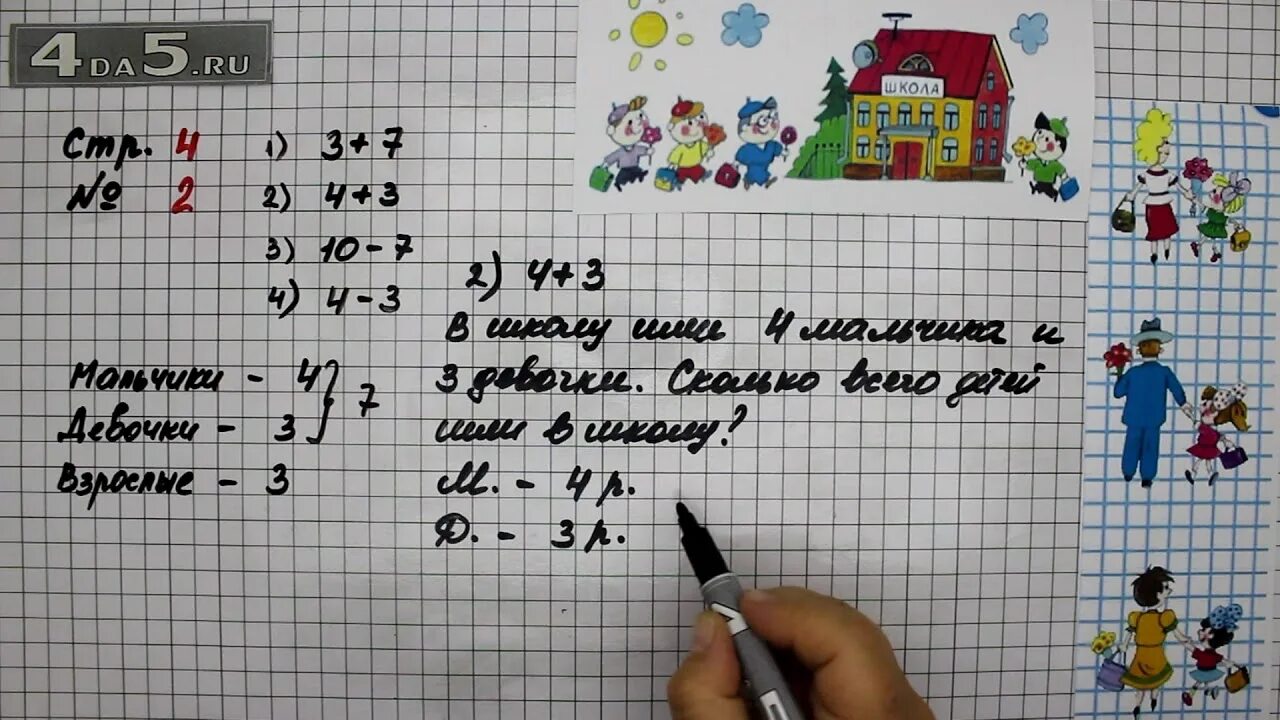 4DA5.RU
ШКОЛА
Стр. 4
№ 2
1) 3+7
2) 4+3
3) 10-7
4) 4-3
Мальчики - 4
Девочки - 3
7
Взрослые - 3
2) 4+3
В школу шли 4 мальчика и
3 девочки. Сколько всего детей
шли в школу?
М. - 4 р.
Д. - 3 р.